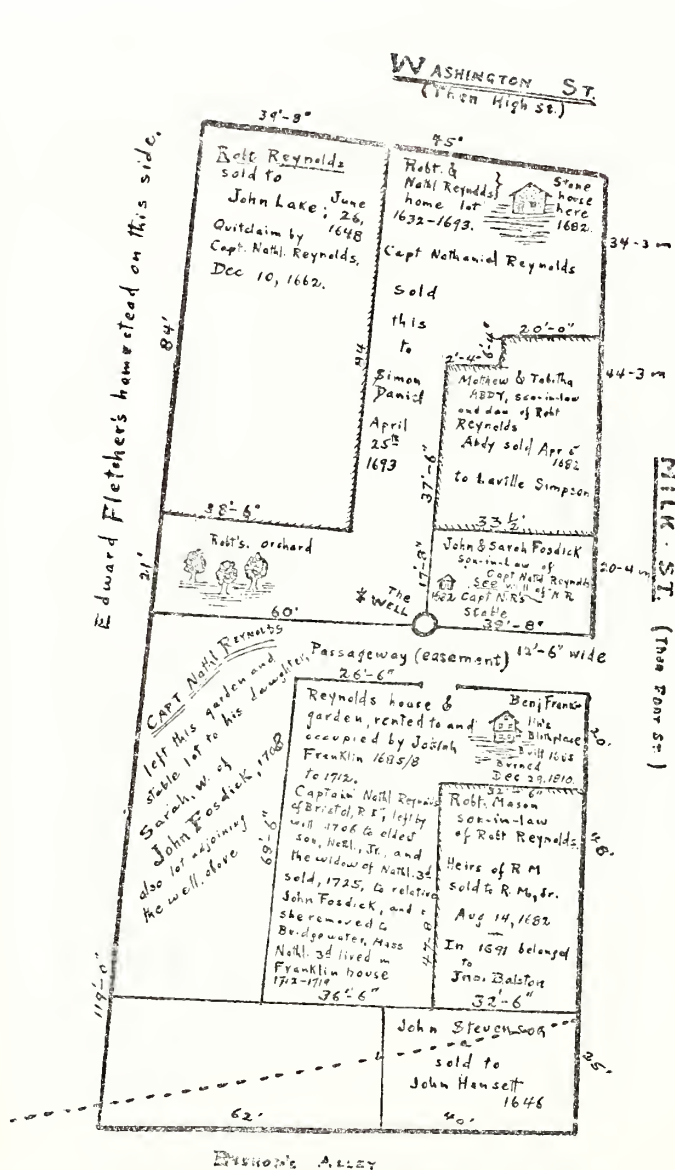 WASHINGTON ST.
(Then High St.)
39'-9"
75'
Edward Fletcher's homestead on this side.
Robt Reynolds
sold to
John Lake; June
26,
1648
Quitclaim by
Capt. Nathl. Reynolds,
Dec 10, 1662.
84'
94
38'-6"
Robt. &
Nathl Reynolds}
home lot
1632-1693.
Stone
house
here
1682.
Capt Nathaniel Reynolds
sold
this
to
Simon
Daniel
April
25th
1693
34-3 in
20'-0"
6'-4"
2'-4"
44-3 in
Matthew & Tabitha
ABDY, son-in-law
and dau of Robt
Reynolds
Abdy sold Apr 5
1682
to Saville Simpson
37'-6"
33 1/2'
MILK ST. (Then Fort St.)
Robt's. orchard
21'
60'
The
WELL
17'-8"
John & Sarah Fosdick
son-in-law of
Capt Nathl Reynolds
See will of N R
1682 Capt N.R's
stable
20-4 in
39'-8"
Passageway (easement) 12'-6" wide
CAPT NATHL REYNOLDS
left this garden and
stable lot to his daughter,
Sarah, w. of
John Fosdick, 1708
also lot adjoining
the well, above
26'-6"
Reynolds house &
garden, rented to and
occupied by Josiah
Franklin 1685/8
to 1712.
Captain Nathl Reynolds
of Bristol, R I, left by
will 1706 to eldest
son, Nathl., Jr., and
the widow of Nathl. 3d
sold, 1725, to relative
John Fosdick, and
she removed to
Bridgewater, Mass
Nathl. 3d lived in
Franklin house
1712-1719
36'-6"
69'-6"
47-8
Benj Frank-
lin's
Birthplace
Built
Burned
Dec 29, 1810.
20'
32'-6"
Robt. Mason
son-in-law
of Robt Reynolds.
Heirs of R M
sold to R. M., Jr.
Aug 14, 1682
In 1691 belonged
to
Jno. Balston
32'-6"
48'
119'-0"
John Stevenson
sold to
John Hansett
1646
25'
62'
40'
BISHOP'S ALLEY